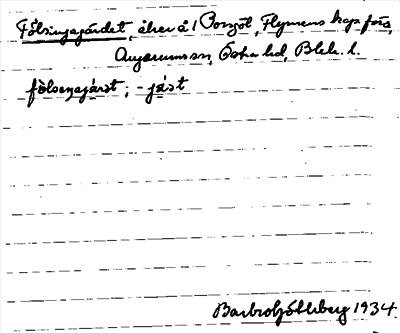 Fölsingagärdet, åker å 1 Porsgöl, Flymens kapförs,
Augerums sn, Östra hd, Blek. l.
fölseŋajárət; -jást
Barbro Göthberg 1934.